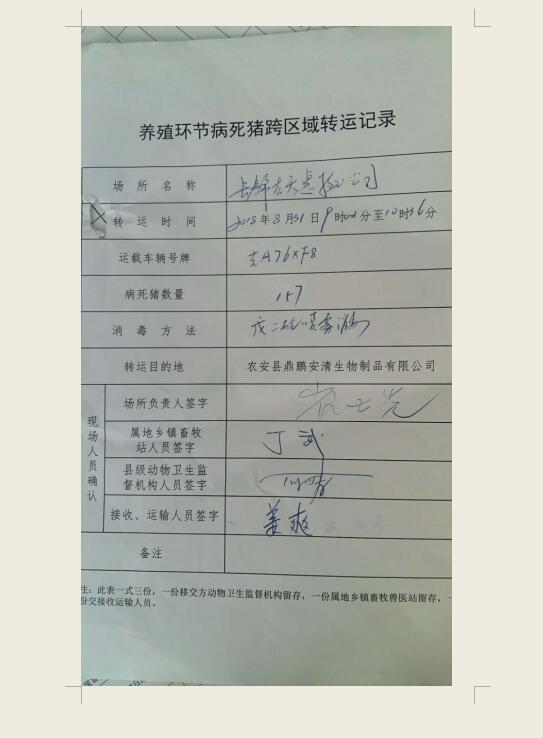 养殖环节病死猪跨区域转运记录
场所名称
转运时间 2018年8月31日9时02分至10时36分
运载车辆号牌 吉A76XF8
病死猪数量 157
消毒方法 戊二醛喷雾消毒
转运目的地 农安县鼎鹏安清生物制品有限公司
现场人员确认
场所负责人签字
属地乡镇畜牧
站人员签字 丁武
县级动物卫生监
督机构人员签字
接收、运输人员签字 姜爽
备注
注：此表一式三份，一份移交方动物卫生监督机构留存，一份属地乡镇畜牧兽医站留存，一
份交接收运输人员。